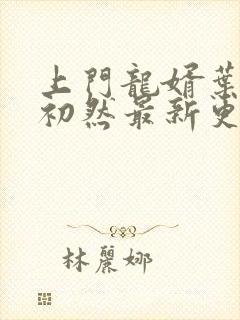 上門龍婿葉
初然最新更
林麗娜